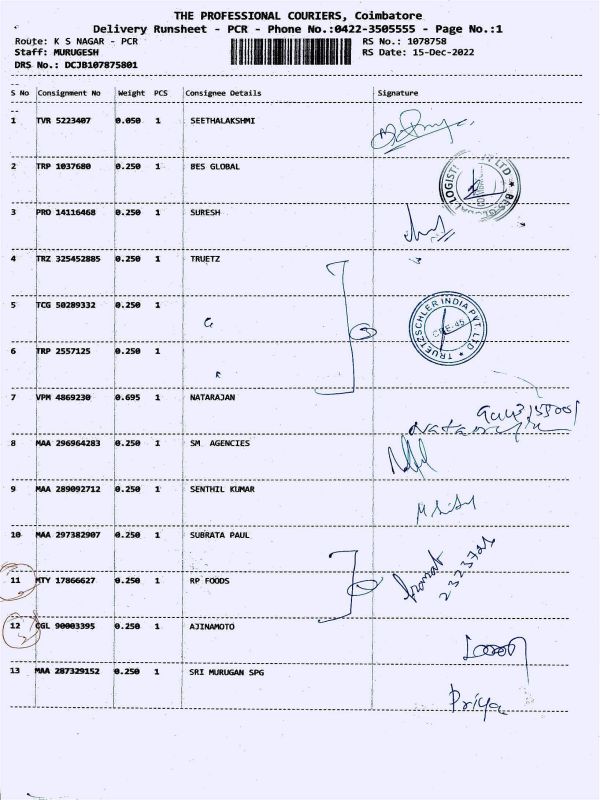 THE PROFESSIONAL COURIERS, Coimbatore
Delivery Runsheet - PCR - Phone No.:0422-3505555 - Page No.:1
Route: K S NAGAR - PCR RS No.: 1078758
Staff: MURUGESH RS Date: 15-Dec-2022
DRS No.: DCJB107875801
S No Consignment No Weight PCS Consignee Details Signature
1 TVR 5223407 0.050 1 SEETHALAKSHMI
2 TRP 1037680 0.250 1 BES GLOBAL
3 PRO 14116468 0.250 1 SURESH
4 TRZ 325452885 0.250 1 TRUETZ
5 TCG 50289332 0.250 1
TRUETZSCHLER INDIA PVT LTD
6 TRP 2557125 0.250 1
7 VPM 4869230 0.695 1 NATARAJAN
Natarajan
8 MAA 296964283 0.250 1 SM AGENCIES
9 MAA 289092712 0.250 1 SENTHIL KUMAR
10 MAA 297382907 0.250 1 SUBRATA PAUL
11 MTY 17866627 0.250 1 RP FOODS
12 CGL 90003395 0.250 1 AJINAMOTO
13 MAA 287329152 0.250 1 SRI MURUGAN SPG
Priya